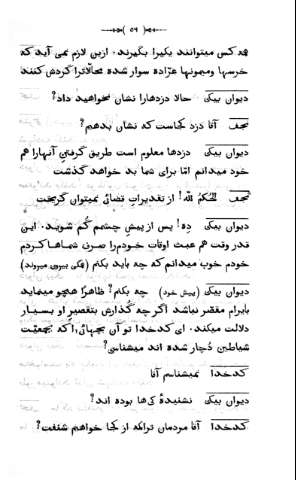 ﴿ ٥٩ ﴾
هه کس میتوانند یکیرا بگیرند. ازین لازم نمی آید که
خرسها ومیمونها عرّاده سوار شده محالاترا کردش کنند
دیوان بیکی حالا دزدهارا نشان نخواهید داد؟
نجف آقا دزد کجاست که نشان بدهیم؟
دیوان بیکی دزدها معلوم است طریق کرفتنِ آنهارا هم
خود میدانم امّا برای شما بد خواهد کذشت
نجف للحکمُ لله! از تقدیراتِ قضائی نمیتوان کریخت
دیوان بیکی دِه! پس از پیشِ چشمم کُم شوید. این
قدر وقت هم عبث اوقاتِ خودم‌را صرفِ شماها کردم
خودم خوب میدانم که چه باید بکنم (همکی بیرون میروند)
دیوان بیکی (پیشِ خود) چه بکنم؟ ظاهرًا همچو مینماید
بایرام مقصّر نباشد اگر چه کُذارش بتقصیرِ او بسیار
دلالت میکند. ای کدخدا تو آن نجبهائی‌را که بجمعیّتِ
شیاطین دُچار شده اند میشناسی؟
کدخدا نمیشناسم آقا
دیوان بیکی نشنیدهٔ کی‌ها بوده اند؟
کدخدا آقا مردمانِ تراکه از کجا خواهم شنُفت؟